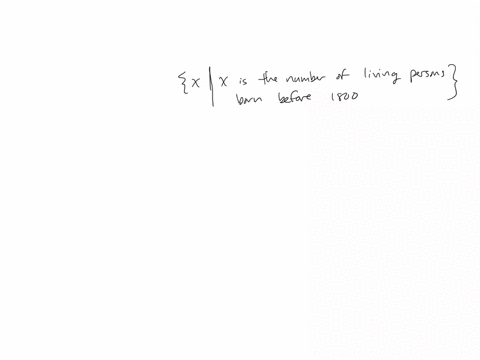 {x | x is the number of living persons
born before 1800}